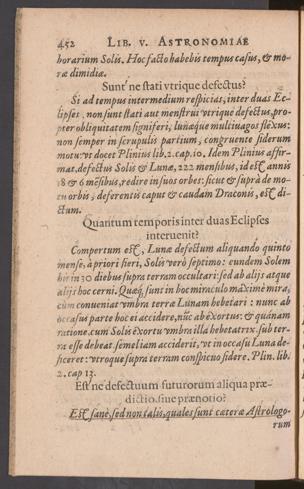 452 LIB. V. ASTRONOMIAE
horarium Solis. Hoc facto habebis tempus casus, & mo-
ræ dimidiæ.
Sunt ne stati vtrique defectus?
Si ad tempus intermedium respicias, inter duas Ec-
lipses, non sunt stati aut menstrui vtrique defectus, pro-
pter obliquitatem signiferi, lunæque multiuagos flexus:
non semper in scrupulis partium, congruente siderum
motu: vt docet Plinius lib. 2. cap. 10. Idem Plinius affir-
mat, defectus Solis & Lunæ, 222 mensibus, id est annis
18 & 6 mēsibus, redire in suos orbes: sicut & suprà de mo-
tu orbis, deferentis caput & caudam Draconis, est di-
ctum.
Quantum temporis inter duas Eclipses
interuenit?
Compertum est, Lunæ defectum aliquando quinto
mense, à priori fieri, Solis verò septimo: eundem Solem
bis in 30 diebus supra terram occultari: sed ab alijs atque
alijs hoc cerni. Quæq́, sunt in hoc miraculo maximè mira,
cùm conueniat vmbra terræ Lunam hebetari: nunc ab
occasus parte hoc ei accidere, nūc ab exortus: & quánam
ratione, cum Solis exortu vmbra illa hebetatrix sub ter-
ra esse debeat, semel iam acciderit, vt in occasu Luna de-
ficeret: vtroque supra terram conspicuo sidere. Plin. lib.
2. cap 13.
Est ne defectuum futurorum aliqua præ-
dictio, siue prænotio?
Est sanè, sed non talis, quales sunt cæteræ Astrologo-
rum